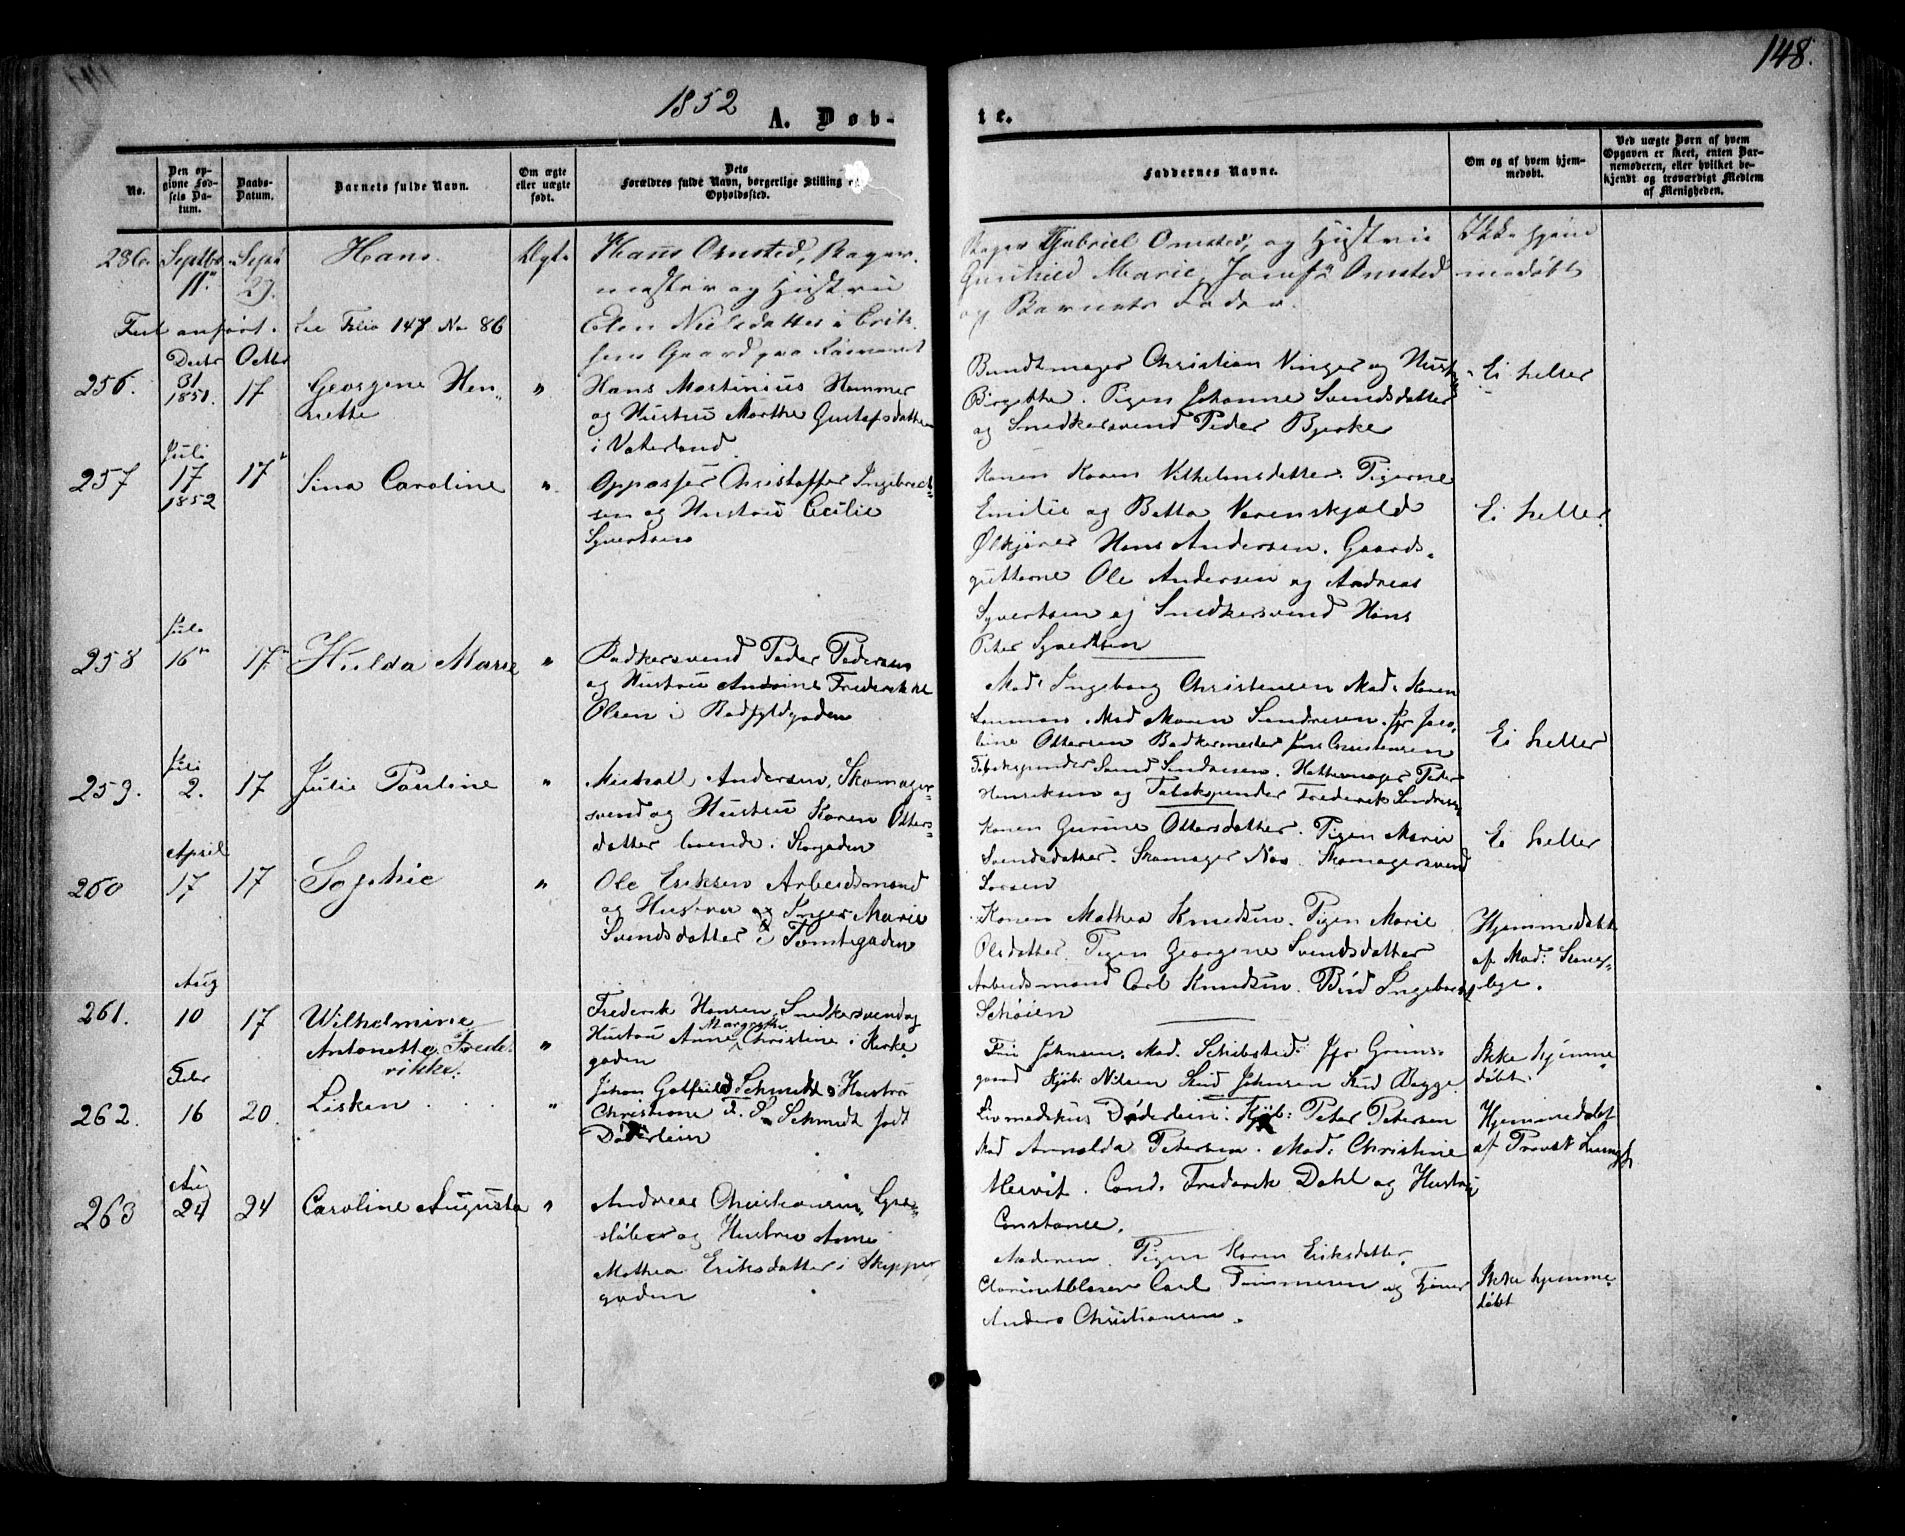 148.
1852
A. Døb-
te.
No.
Den opgivne Fødsels Datum.
Daabs-Datum.
Barnets fulde Navn.
Om ægte eller uægte født.
Dets Forældres fulde Navn, borgerlige Stilling og Opholdssted.
Faddernes Navne.
Om og af hvem hjemmedøbt.
Ved uægte Børn af hvem Opgaven er skeet, enten Barnemoderen, eller hvilket bekjendt og troværdigt Medlem af Menigheden.
286. Septbr 11. Sept 29. Hans. Ægte
Hans Omsted, Bager-
mester og Hustru
Elen Nielsdatter i Erik-
sens Gaard paa
Bager Gabriel Omsted, og Hustru
Gunhild Marie, Omsted
og Barnets Fader.
Ikke hjem
medøbt
Feil anført. See Folio 147 No 86
256. Decbr 31 1851. Octbr 17 Georgene Hen-
riette "
Hans Martinius Hammer
og Hustru Marthe Gustafsdatter
i Vaterland.
Bundtmager Christian Vinger og Hustr
Birgitte. Pigen Johanne Svendsdatter
og Snedkersvend Peder Bjerke
Ei heller
257 Juli 17 1852 17 Sina Caroline "
Oppasser Christoffer Ingebret-
sen og Hustru Cecilie
Syvertsen
Konen Karen Vilhelmsdatter. Pigerne
Emilie og Betta Verenskjold
Ølkjører Hans Andersen. Gaards-
gutterne Ole Andersen og Andreas
Syvertsen og Snedkersvend Hans
Peter Syvertsen
Ei heller
258 Juli 16 17 Hulda Marie "
Badkersvend Peder Pedersen
og Hustru Frederikke
Olsen i Rødfyldgaden
Mad. Ingeborg Christensen Mad. Karen
Mad Maren
Ottersen Badkermester Jens Christensen
Hattemager Peter
Henriksen og Frederik
Ei heller
259. Juli 2. 17 Julie Pauline "
Michal Andersen, Skomager-
svend og Hustru Karen Otters-
datter boende i
Konen Gurine Ottersdatter. Pigen Marie
Svendsdatter. Skomager Næs. Skomagersvend
Larsen
Ei heller
260 April 17 17 Sophie "
Ole Eriksen Arbeidsmand
og Hustru Inger Marie
Svendsdatter i Tomtegaden
Konen Mathea Knudsen. Pigen Marie
Olsdatter. Pigen Georgine Svendsdatter
Arbeidsmand Carl Knudsen. Bud Ingebret
Schøien
Hjemmedøbt
af Mad.
261. Aug 10 17 Wilhelmine
Antonette Frede-
rikke. "
Frederik Hansen, Snedkersvend og
Hustru Anne Margrethe Christine i Kirke-
gaden
Fru Johnsen. Mad. Schibsted. Jfr
Kjøb. Nilsen Stud Johnsen Stud Bagge
Ikke hjemme
døbt.
262. Febr 16 20. Lisken "
Johan Gotfried Schmidt & Hustru
Christiane F. S. Schmidt født
Døderlein
Livmedikus Døderlein: Kjøb: Peter Petersen
Mad Arnolda Petersen. Mad. Christine
Hesvit. Cand. Frederik Dahl og Hustru
Constance.
Hjemmedøbt
af Provst
263 Aug 24 24 Caroline Augusta "
Andreas Christiansen,
og Hustru Anne
Mathea Eriksdatter i Skipper
gaden
Moderen. Pigen Karen Eriksdatter.
Clarinetblæser Carl og Tjener
Anders Christiansen.
Ikke hjemme-
døbt